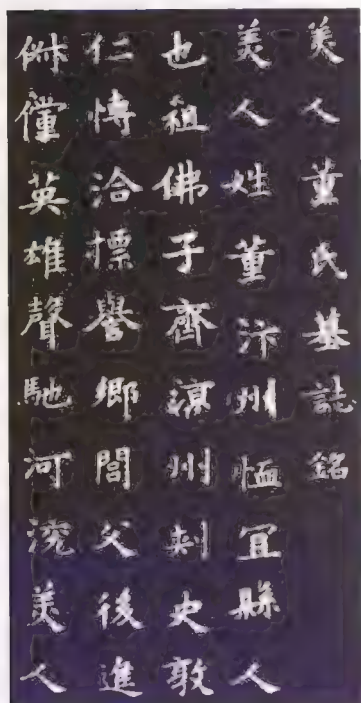 美人董氏墓誌銘
美人姓董汴州恤宜縣人
也祖佛子齊涼州刺史敦
仁博洽標譽鄉閭父後進
俶儻英雄聲馳河渷美人